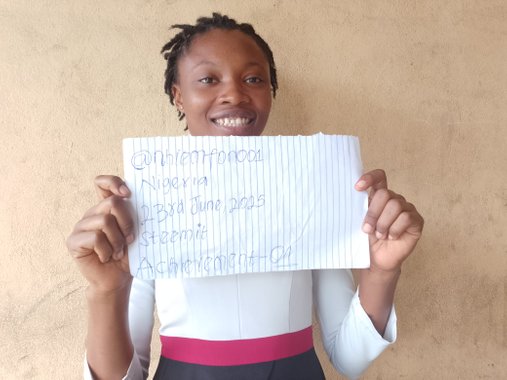 Nigeria
23rd June, 2025
Steemit
Achievement-01